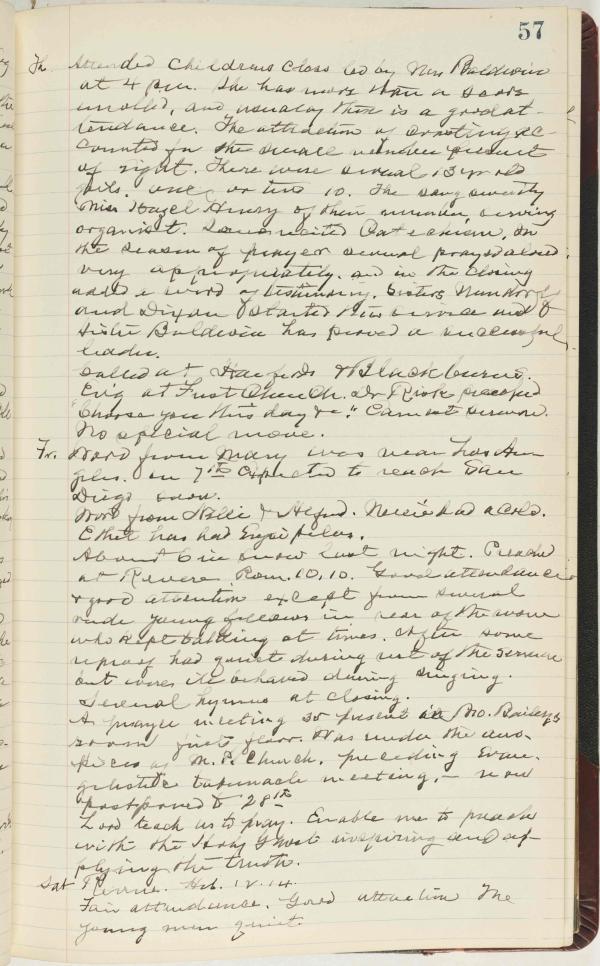 57
Th. Attended Childrens Class led by Mrs Baldwin
at 4 p.m. She has more than a score
enrolled, and usually there is a good at-
tendance. The attraction of coasting ac-
counted for the small number present
of right. There were several 13 yr old
girls, one or two 10. The sang sweetly
Miss Hazel Henry of their number, serving
organist. Some recited Catechism, In
the season of prayer several prayed aloud
very appropriately, and in the closing
added a word of testimony. Sisters
and Dixon started this service and
Sister Baldwin has proved a successful
leader.
Called at & Blackburns.
Ev'g at First Church. Dr preached
"Choose you this day &c." Earnest sermon.
No special move.
Fr. Word from Mary was near Los An
geles. on 7th expected to reach San
Diego soon.
Word from Nellie & Alfred. Nellie had a cold.
Ethel has had Erysipelas.
About 6 in snow last night. Preached
at Revere Rom. 10, 10. Good attendance
& good attention except from several
rude young fellows in rear of the room
who kept talking at times. After some
reproof had quiet during rest of the service
but were ill behaved during singing.
Several hymns at closing.
A prayer meeting 35 present in Bro. Baileys
room first floor. Was under the aus-
pices of M. P. Church, preceding Evan-
gelistic tabernacle meeting, - now
postponed to 28th
Lord teach us to pray. Enable me to preach
with the Holy Ghost inspiring and ap-
plying the truth.
Sat Revere. Heb. 12.14.
Fair attendance. Good attention The
young men quiet.